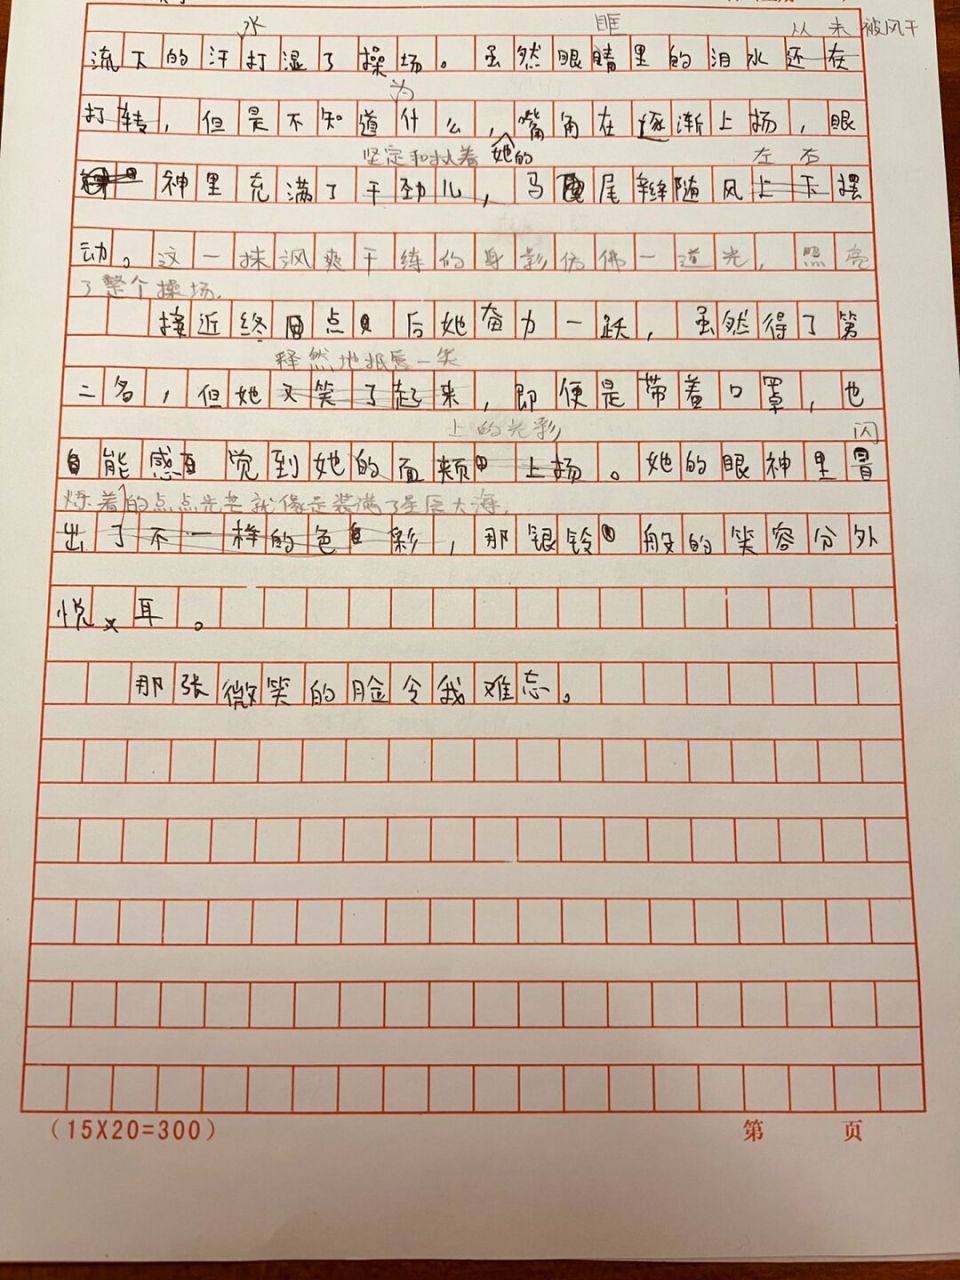 水 眶 从未被风干
流下的汗打湿了操场。虽然眼睛里的泪水还在
为
打转，但是不知道什么，嘴角在逐渐上扬，眼
坚定和执着 她的 左右
神里充满了干劲儿，马尾辫随风上下摆
动。这一抹飒爽干练的身影仿佛一道光，照亮
了整个操场。
接近终点后她奋力一跃，虽然得了第
释然地抿唇一笑
二名，但她又笑了起来，即便是带着口罩，也
上的光彩 闪
能感觉到她的面颊上扬。她的眼神里冒
烁着的点点光芒就像是装满了星辰大海，
出了不一样的色彩，那银铃般的笑容分外
悦耳。
那张微笑的脸令我难忘。
(15X20=300) 第 页